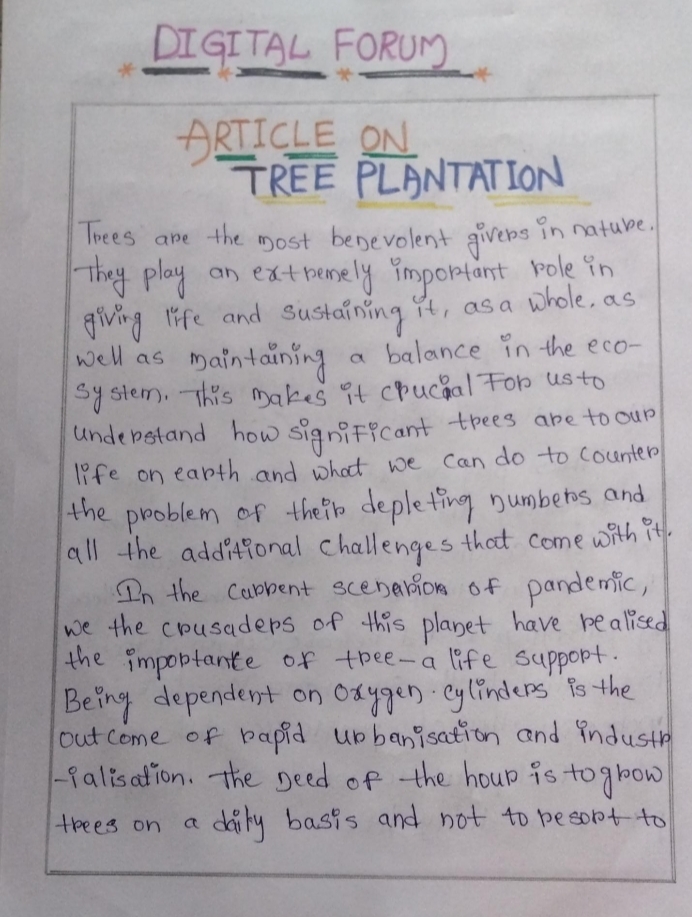 DIGITAL FORUM
ARTICLE ON
TREE PLANTATION
Trees are the most benevolent givers in nature.
They play an extremely important role in
giving life and sustaining it, as a whole. as
well as maintaining a balance in the eco-
system. This makes it crucial For us to
understand how significant trees are to our
life on earth and what we can do to counter
the problem of their depleting numbers and
all the additional challenges that come with it.
In the current scenarion of pandemic,
we the crusaders of this planet have realised
the importante of tree-a life support.
Being dependent on Oxygen. cylinders is the
outcome of rapid urbanisation and industr
-ialisation. The need of the hour is to grow
trees on a daily basis and not to resort to